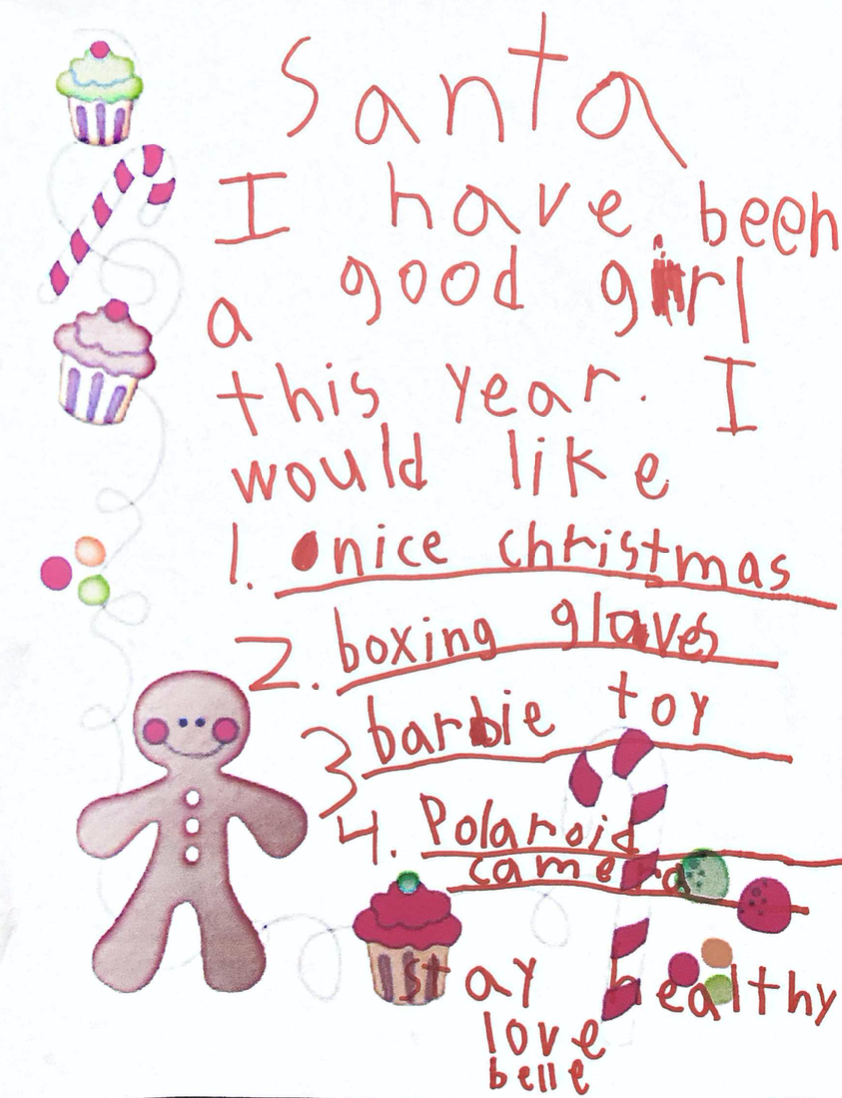 Santa
I have been
a good girl
this year. I
would like
1. nice christmas
2. boxing gloves
3 barbie toy
4. Polaroid
camera
stay healthy
love
belle